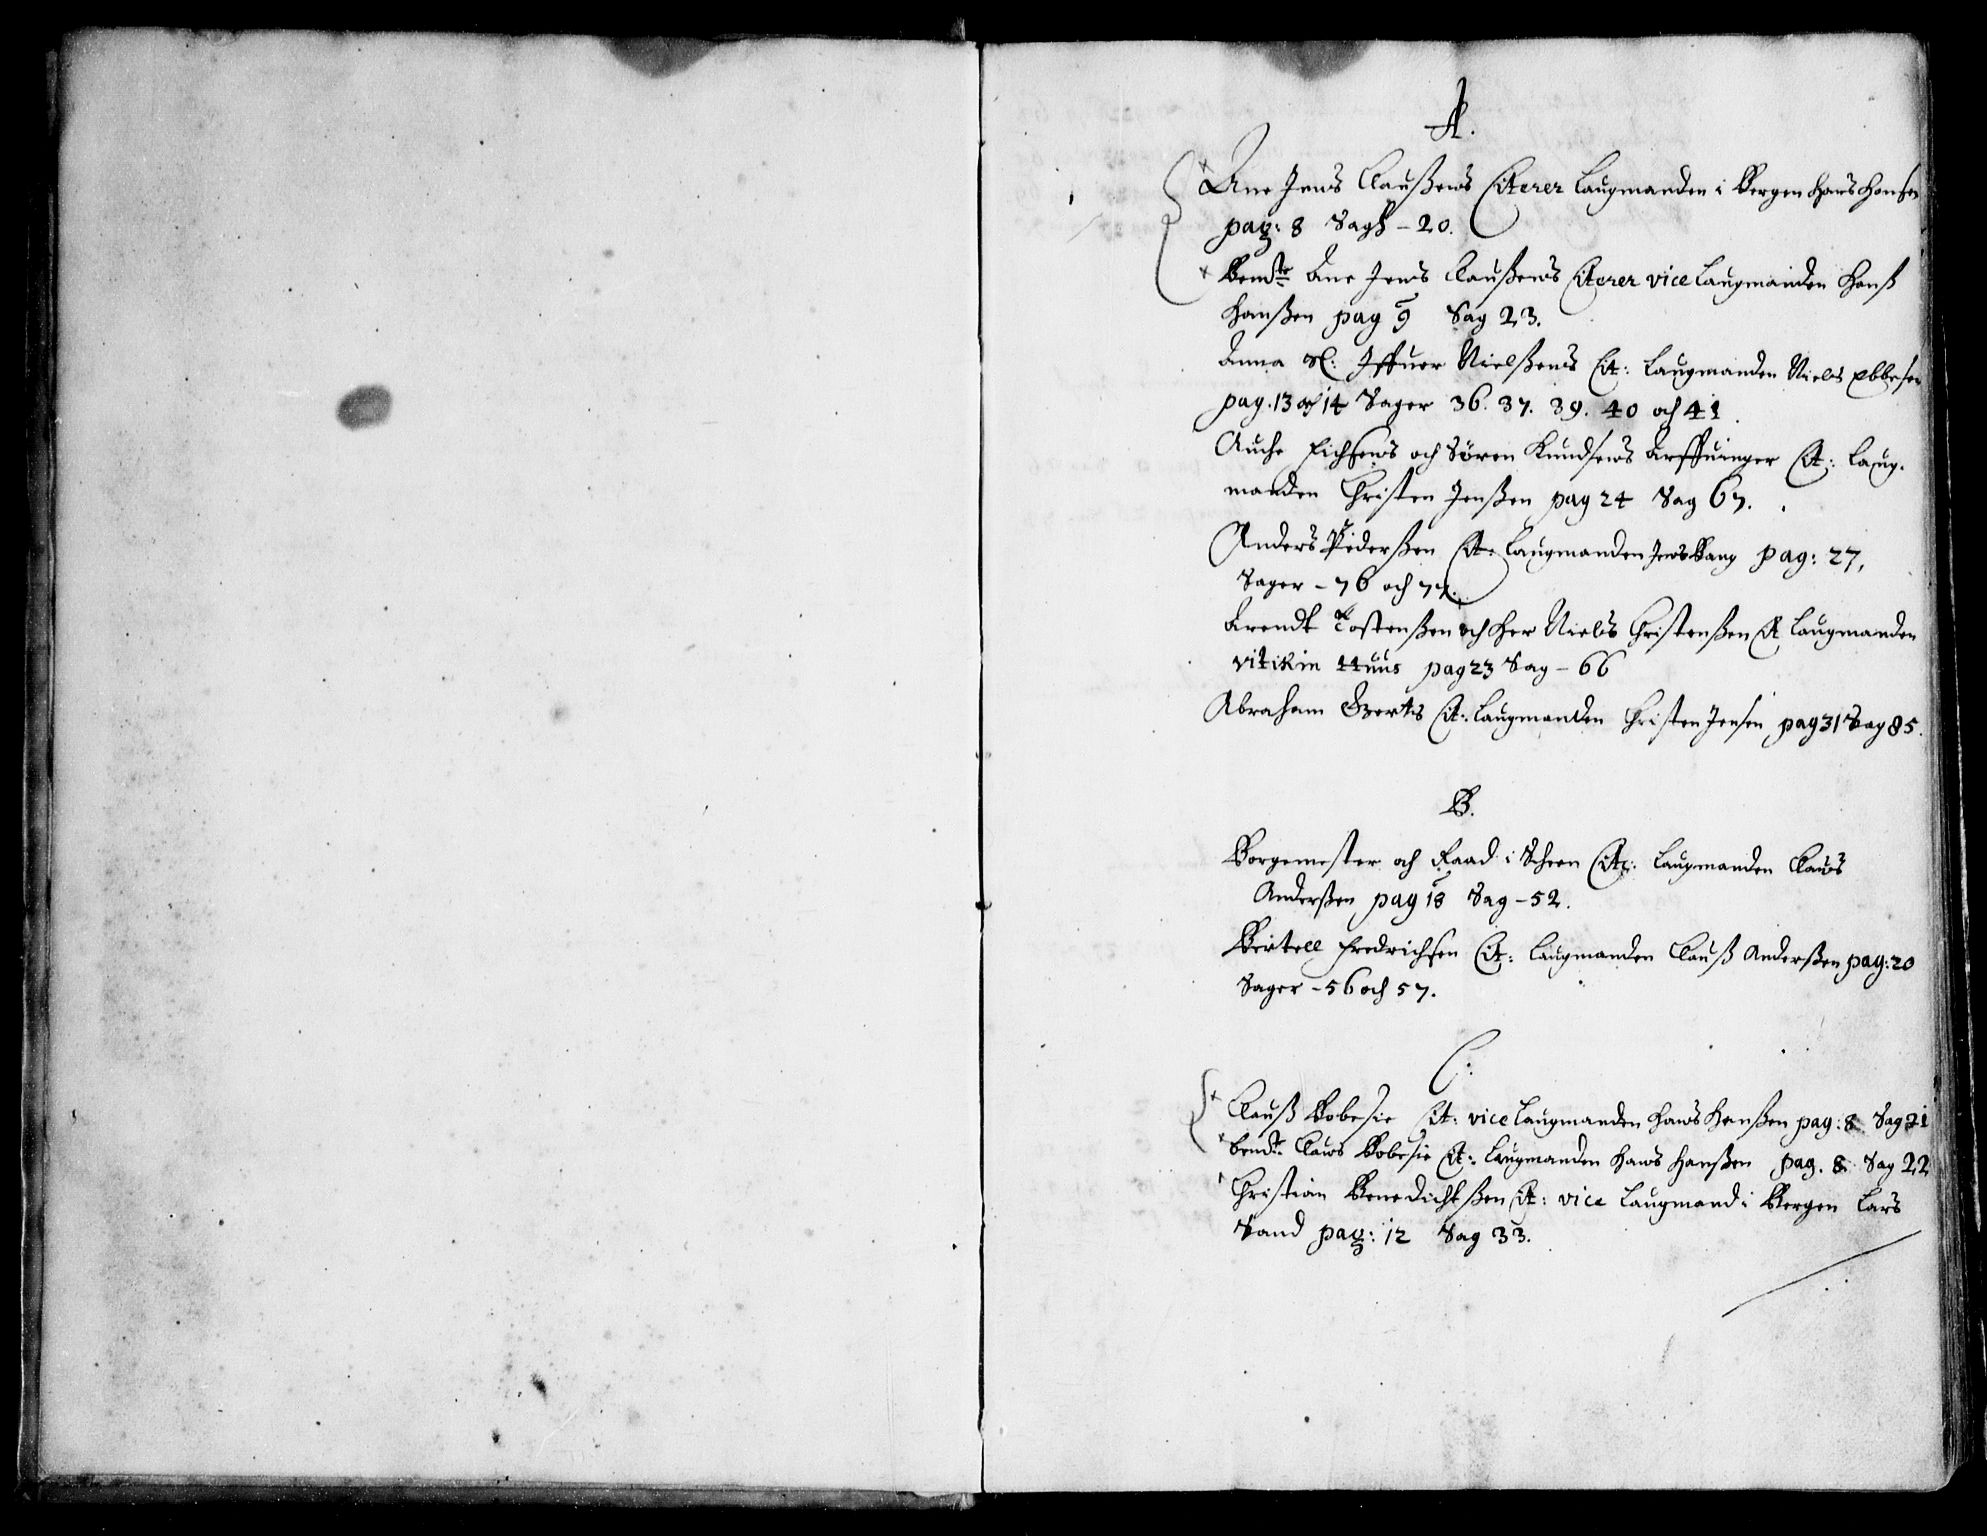 A.
Ane Jens Claußens Citerer Laugmanden i Bergen Hans Hansen
pag: 8 Sagh - 20.
Bemte Ane Jens Claußens Citerer vice Laugmanden Hanß
Hanßen pag 9 Sag 23.
Anna Sl: Iffuer Nielßens Cit: Laugmanden Niels Ebbesen
pag. 13 och 14 Sager 36. 37. 39. 40 och 41
Auche Eichsens och Søren Knudsens Arffuinger Cit: Laug-
manden Christen Jenßen pag 24 Sag 67.
Anders Pederßen Cit: Laugmanden Jens Bang pag: 27,
Sager - 76 och 77.
Arendt Tostenßen och Her Niels Christenßen Cit Laugmanden
vitikin Huus pag 23 Sag - 66
Abraham Gerts Cit: Laugmanden Christen Jensen pag 31 Sag 85.
B.
Borgemester och Raad i Scheen Cit: Laugmanden Claus
Anderßen pag 18 Sag - 52.
Bertell Fredrichsen Cit: Laugmanden Clauß Anderßen pag: 20
Sager - 56 och 57.
C:
Clauß Bobesie Cit: vice Laugmanden Hans Hanßen pag: 8 Sag 21
bemte Claus Bobesie Cit: Laugmanden Hans Hanßen pag. 8 Sag 22
Christian Benedichtßen Cit: vice Laugmand i Bergen Lars
Sand pag: 12 Sag 33.